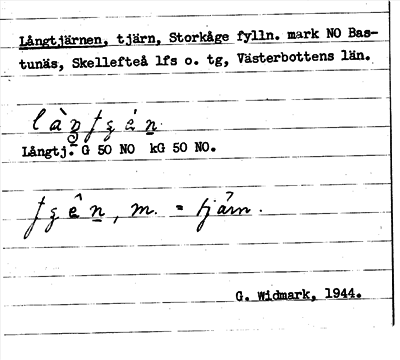 Långtjärnen, tjärn, Storkåge fylln. mark NO Bas-
tunäs, Skellefteå lfs o. tg, Västerbottens län.
Långtj. G 50 NO kG 50 NO.
m. = tjärn.
G. Widmark, 1944.